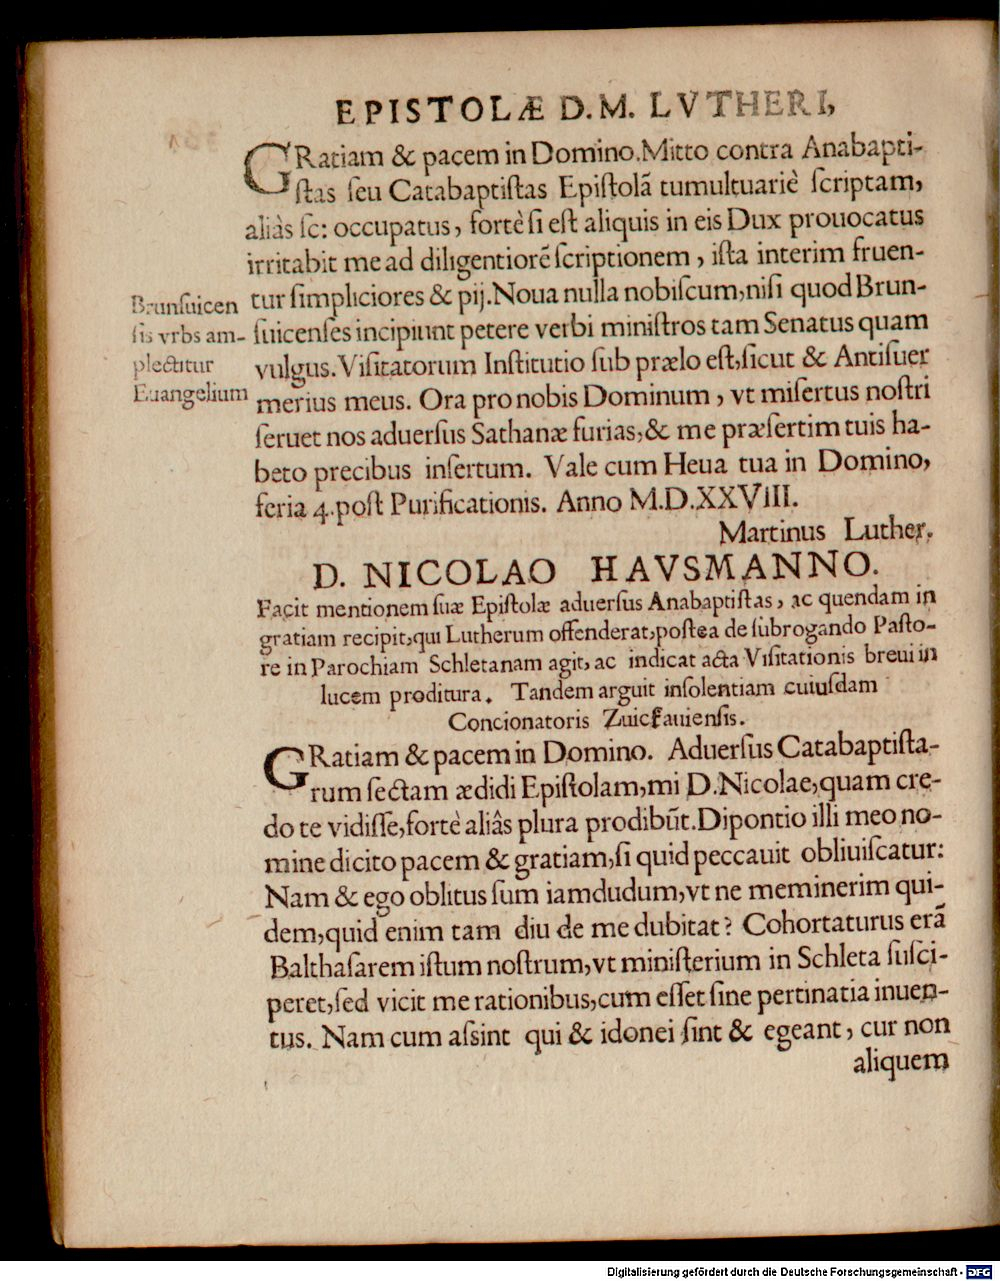 EPISTOLÆ D. M. LVTHERI,
GRatiam & pacem in Domino. Mitto contra Anabapti-
ſtas ſeu Catabaptiſtas Epiſtolã tumultuariè ſcriptam,
aliàs ſc: occupatus, fortè ſi eſt aliquis in eis Dux prouocatus
irritabit me ad diligentiorẽ ſcriptionem, iſta interim fruen-
tur ſimpliciores & pij. Noua nulla nobiſcum, niſi quod Brun-
ſuicenſes incipiunt petere verbi miniſtros tam Senatus quam
vulgus. Viſitatorum Inſtitutio ſub prælo eſt, ſicut & Antiſuer
merius meus. Ora pro nobis Dominum, vt miſertus noſtri
ſeruet nos aduerſus Sathanæ furias, & me præſertim tuis ha-
beto precibus inſertum. Vale cum Heua tua in Domino,
feria 4. poſt Purificationis. Anno M.D.XXVIII.
Brunſuicen
ſis vrbs am-
plectitur
Euangelium
Martinus Luther.
D. NICOLAO HAVSMANNO.
Facit mentionem ſuæ Epiſtolæ aduerſus Anabaptiſtas, ac quendam in
gratiam recipit, qui Lutherum offenderat, poſtea de ſubrogando Paſto-
re in Parochiam Schletanam agit, ac indicat acta Viſitationis breui in
lucem proditura. Tandem arguit inſolentiam cuiuſdam
Concionatoris Zuickauienſis.
GRatiam & pacem in Domino. Aduerſus Catabaptiſta-
rum ſectam ædidi Epiſtolam, mi D. Nicolae, quam cre-
do te vidiſſe, fortè aliâs plura prodibũt. Dipontio illi meo no-
mine dicito pacem & gratiam, ſi quid peccauit obliuiſcatur:
Nam & ego oblitus ſum iamdudum, vt ne meminerim qui-
dem, quid enim tam diu de me dubitat? Cohortaturus erã
Balthaſarem iſtum noſtrum, vt miniſterium in Schleta ſuſci-
peret, ſed vicit me rationibus, cum eſſet ſine pertinatia inuen-
tus. Nam cum aſsint qui & idonei ſint & egeant, cur non
aliquem
Digitalisierung gefördert durch die Deutsche Forschungsgemeinschaft - DFG